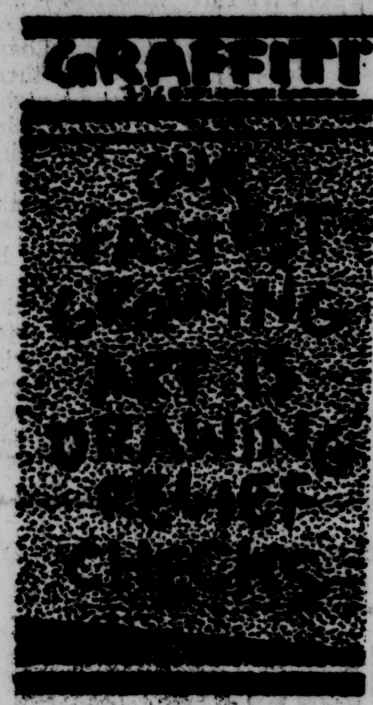 GRAFFITI
OUR
FASTEST
GROWING
ART IS
DRAWING
RELIEF
CHECKS